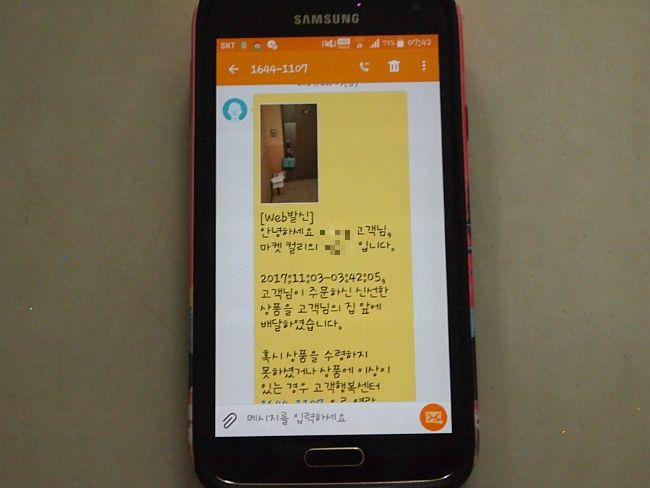 SAMSUNG
SKT 77% 07:42
1644-1107
[Web발신]
안녕하세요 고객님,
마켓 컬리의 입니다.
2017:11:03-03:42:05,
고객님이 주문하신 신선한
상품을 고객님의 집 앞에
배달하였습니다.
혹시 상품을 수령하지
못하셨거나 상품에 이상이
있는 경우 고객행복센터
1644-1107 으로 연락
메시지를 입력하세요